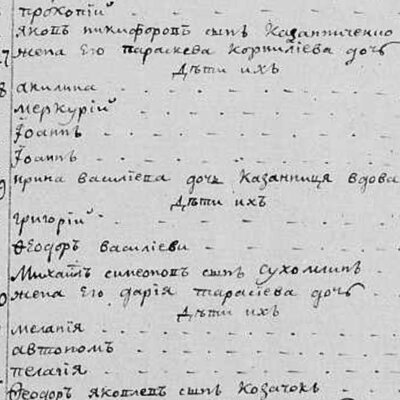 прокопій
яковъ никифоровъ сынъ Казанниченко
7 жена Его параскева Корниліева дочь
Дѣти ихъ
8 акилина
меркурій
Іоаннъ
Іоаннъ
9 ирина василіева дочь Казанниця вдова
Дѣти ихъ
григорій
Ѳеодоръ василіеви
Михаилъ симеоновъ сынъ Сухомлинъ
0 жена Его дарія тарасіева дочь
Дѣти ихъ
меланія
автономъ
пелагія
Ѳеодоръ яковлевъ сынъ Козачокъ